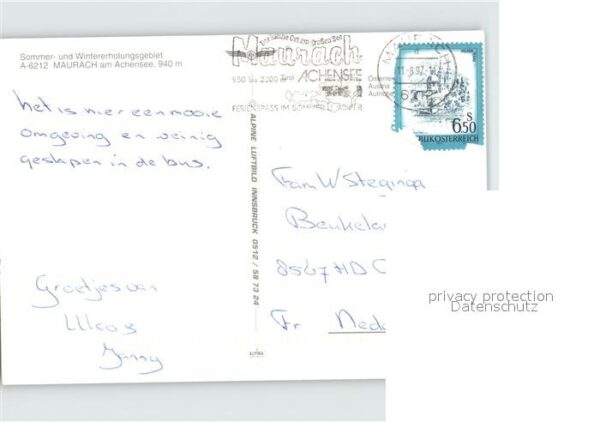 Sommer- und Wintererholungsgebiet
A-6212 MAURACH am Achensee, 940 m
Maurach
950 bis 2200 m
Tirol
ACHENSEE
FERIENSPASS IM SOMMER U. WINTER
MAURACH
6212
S
6.50
REPUBLIK ÖSTERREICH
Het is hier een mooie
omgeving en weinig
geslapen in de bus.
Groetjes van
Janny
ALPINE LUFTBILD INNSBRUCK 0512 / 58 73 24
Fam W Steginga
Beukela
8567 HD
Fr. Nede
privacy protection
Datenschutz